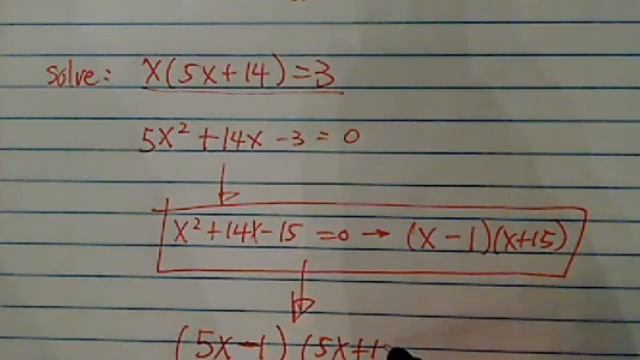 solve: x(5x+14)=3
5x² +14x -3 = 0
x²+14x-15 =0 → (x-1)(x+15)
(5x-1) (5x+1